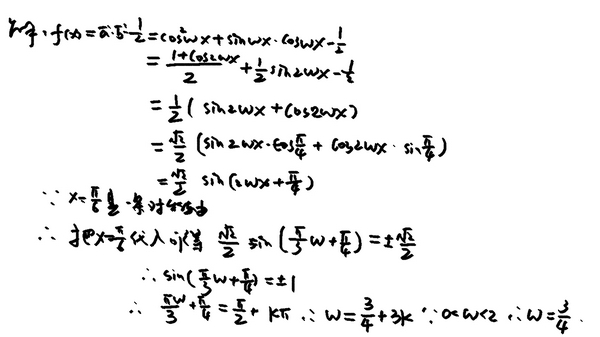 解: f(x)=a·b-1/2=cos²wx+sinwx·coswx-1/2
=(1+cos2wx)/2+1/2sin2wx-1/2
=1/2(sin2wx+cos2wx)
=√2/2(sin2wx·cosπ/4+cos2wx·sinπ/4)
=√2/2 sin(2wx+π/4)
∵x=π/6是一条对称轴
∴把x=π/6代入可得 √2/2 sin(π/3w+π/4)=±√2/2
∴sin(π/3w+π/4)=±1
∴πw/3+π/4=π/2+kπ∴w=3/4+3k∵0<w<2∴w=3/4.